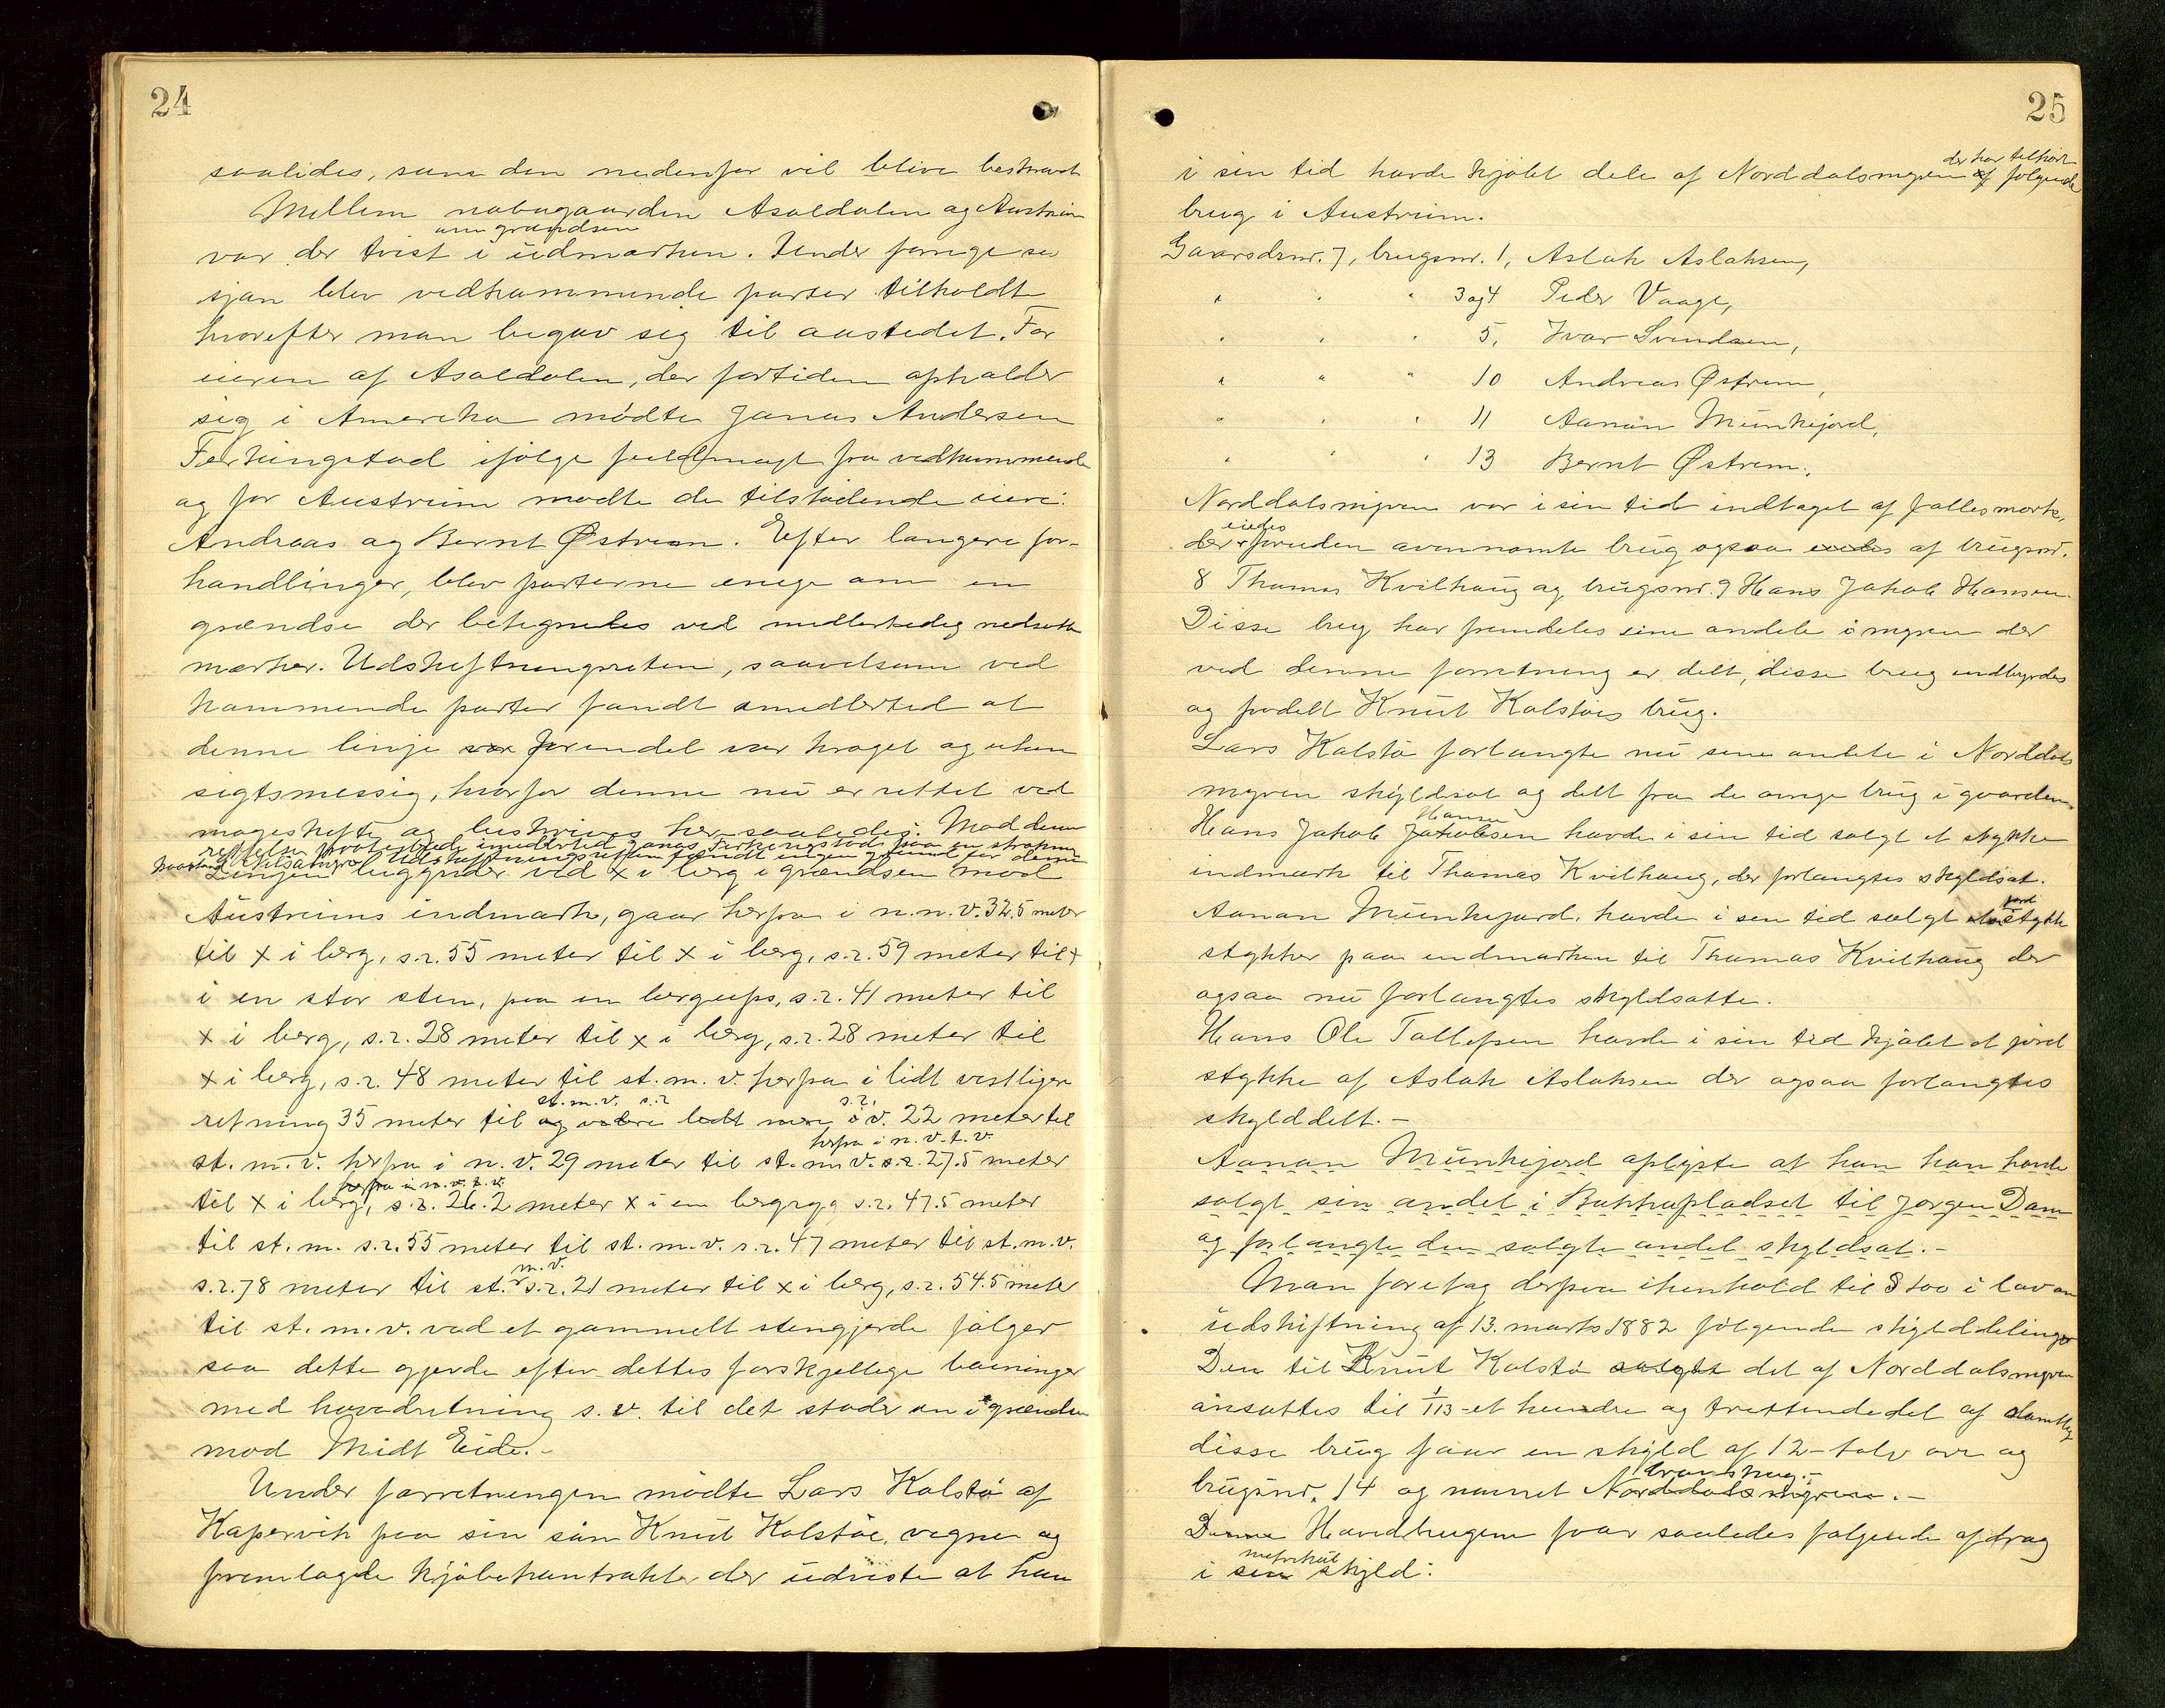 24
saaledes, som den nedenfor vil blive beskrevet
Mellem nabogaarden Asaldalen og Austrim
om grændsen
var der tvist i udmarken. Under forrige se
sjon blev vedkommende parter tilholdt
hvorefter man begav sig til aastedet. For
eieren af Asaldalen, der fortiden opholder
sig i Amerika mødte Jonas Andersen
Ferkingstad ifølge fuldmagt fra vedkommende
og for Austrim mødte de tilstødende eiere:
Andreas og Bernt Østrem. Efter længere for-
handlinger, blev parterne enige om en
grændse der betegnedes ved midlertidig nedsatte
mærker. Udskiftningsretten, saavelsom ved
kommende parter fandt imidlertid at
denne linje var forendel var kroget og uhen
sigtsmessig, hvorfor denne nu er rettet ved
mageskifte og beskrives her saaledes: Mod denne
rettelse protesterede imidlertid Jonas Ferkingstad paa en strækning
Udskiftningsretten fandt ingen grund for denne
Linjen begynder ved x i berg i grændsen mod
Austrims indmark, gaar herfra i n.n.v. 32.5 meter
til x i berg, s.r. 55 meter til x i berg, s.r. 59 meter til x
i en stor sten, paa en bergups, s.r. 41 meter til
x i berg, s.r. 28 meter til x i berg, s.r. 28 meter til
x i berg, s.r. 48 meter til st. m. v. herfra i lidt vestligere
st. m. v. s.r. s.r.
retning 35 meter til og videre lidt mere i v. 22 meter til
herfra i n. v. t. v.
st. m. v. herfra i n. v. 29 meter til st. m. v. s.r. 27.5 meter
herfra i n. v. t. v.
til x i berg, s.r. 26.2 meter x i en bergryg s.r. 47.5 meter
til st. m. s.r. 55 meter til st. m. v. s.r. 47 meter til st. m. v.
m. v.
s.r. 78 meter til st. s.r. 21 meter til x i berg, s.r. 54.5 meter
til st. m. v. ved et gammelt stengjerde følger
saa dette gjerde efter dettes forskjellige bøininger
med hovedretning s. v. til det støder an i grændsen
mod Midt Eide.-
Under forretningen mødte Lars Kolstø af
Kopervik paa sin søn Knut Kolstøe, vegne og
fremlagde kjøbekontrakter der udviste at han
25
der har tilhørt
i sin tid havde kjøbt dele af Norddalsmyren af følgende
brug i Austrim.
Gaardsnr. 7, brugsnr. 1, Aslak Aslaksen,
" " " 3 og 4 Peder Vaage,
" " " 5, Ivar Svendsen,
" " " 10 Andreas Østrem,
" " " 11 Aanan Munkejord,
" " " 13 Bernt Østrem.,
Norddalsmyren var i sin tid indtaget af fællesmark,
eiedes
der foruden avennævnte brug ogsaa eiedes af brugsnr.
8 Thomas Kvilhaug og brugsnr. 9 Hans Jakob Hansen.
Disse brug har fremdeles sine andele i myren der
ved denne forretning er delt, disse brug indbyrdes
og fradelt Knut Kolstøes brug.
Lars Kolstø forlangte nu sine andele i Norddals
myren skyldsat og delt fra de øvrige brug i gaarden.
Hansen
Hans Jakob Jakobsen havde i sin tid solgt et stykke
indmark til Thomas Kvilhaug, der forlangtes skyldsat.
jord
Aanan Munkejord, havde i sin tid solgt stykke
stykker paa indmarken til Thomas Kvilhaug der
ogsaa nu forlangtes skyldsatte.
Hans Ole Tollefsen havde i sin tid kjøbt et jord
stykke af Aslak Aslaksen der ogsaa forlangtes
skylddelt.-
Aanan Munkejord oplyste at han han havde
solgt sin andel i Bakkapladset til Jørgen Dam
og forlangte den solgte andel skyldsat.-
Man foretog derpaa i henhold til § 100 i lov om
udskiftning af 13. marts 1882 følgende skylddelinger
Den til Knut Kolstø solgte del af Norddalsmyren
ansattes til 1/113 - et hundre og trettendedel af samtlig
disse brug faar en skyld af 12 - tolv øre og
brugsnr. 14 og navnet Norddalsmyren.-
Denne Hovedbrugene faar saaledes følgende afdrag
matrikul
i sin skyld: